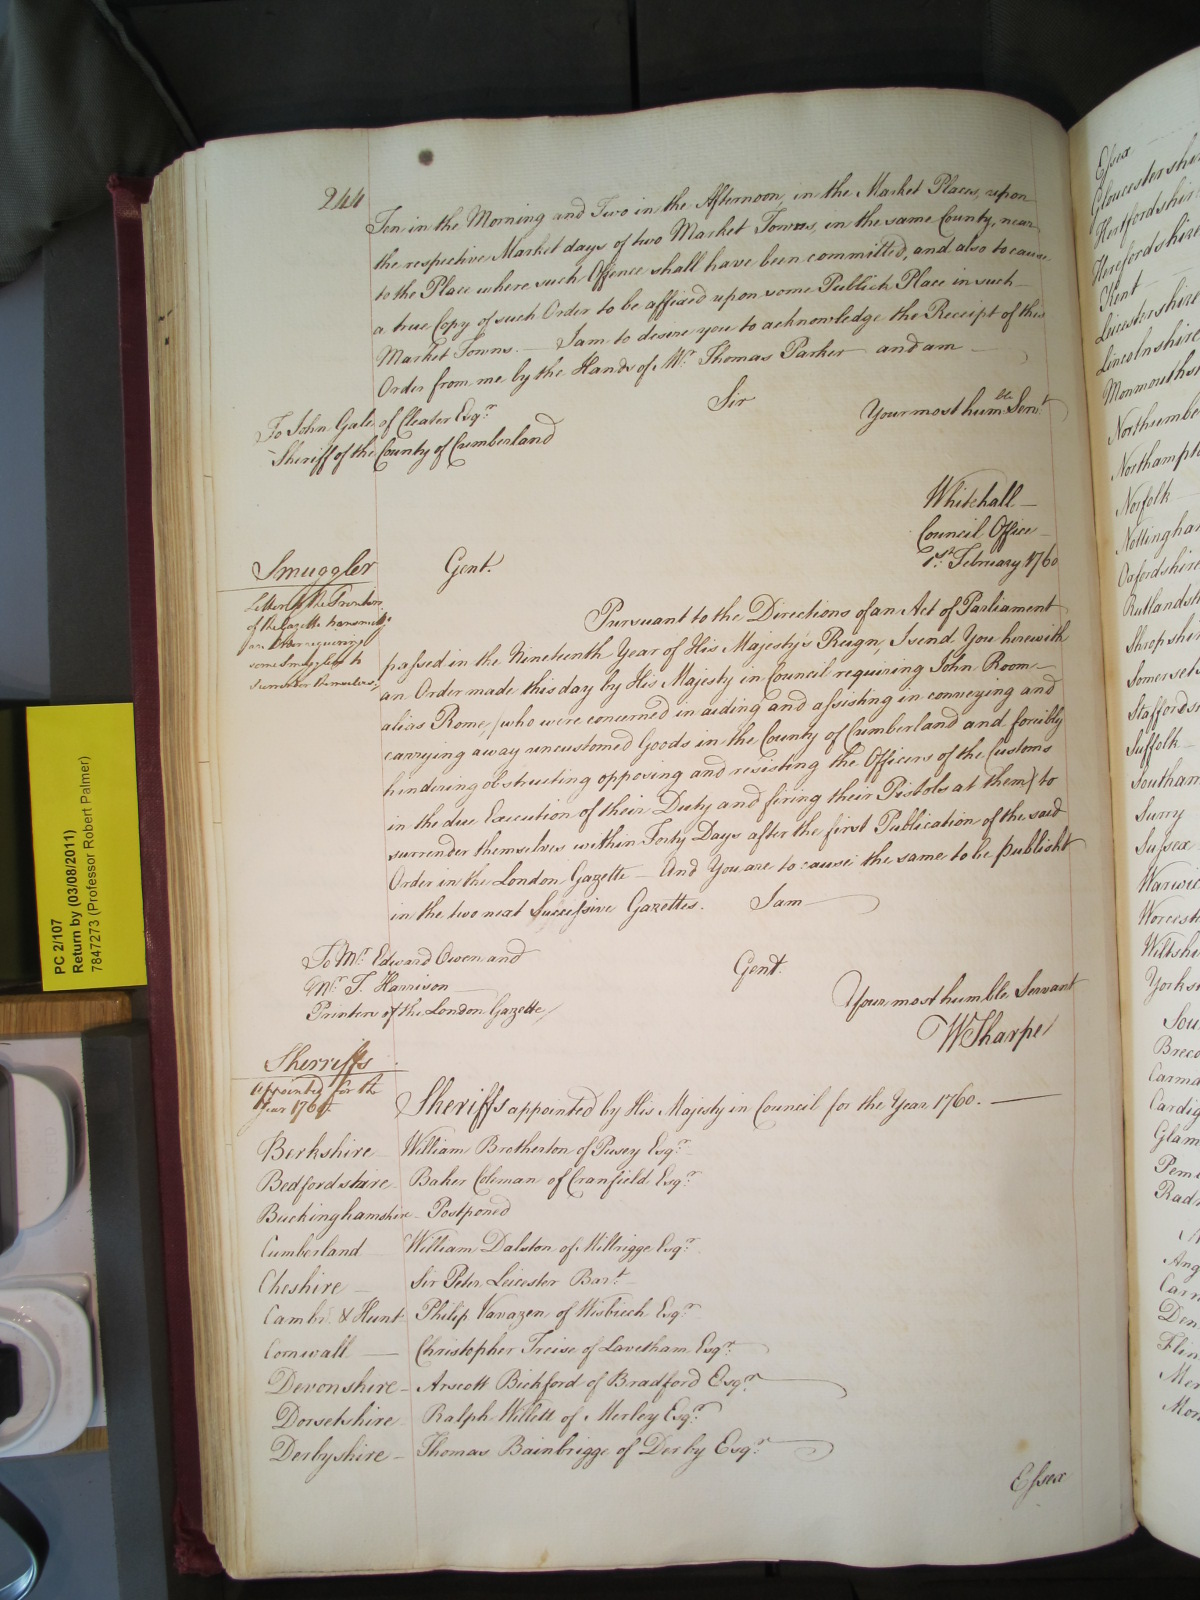 244
Ten in the Morning and Two in the Afternoon, in the Market Places, upon
the respective Market days of two Market Towns, in the same County, near
to the Place where such Offence shall have been committed, and also to cause
a true Copy of such Order to be affixed upon some Publick Place in such
Market Towns. — I am to desire you to acknowledge the Receipt of this
Order from me by the Hands of Mr. Thomas Parker and am
Sir
Your most humble Servt
To John Gale of Cleater Esqr.
Sheriff of the County of Cumberland
Whitehall
Council Office
1st February 1760
Smuggler
Letter to the Printers
of the Gazette transmitg
an Order requiring
some Smugglers to
surrender themselves
Gent.
Pursuant to the Directions of an Act of Parliament
passed in the Nineteenth Year of His Majesty's Reign, I send You herewith
an Order made this day by His Majesty in Council requiring John Room
alias Rome, (who were concerned in aiding and assisting in conveying and
carrying away uncustomed Goods in the County of Cumberland and forcibly
hindering obstructing opposing and resisting the Officers of the Customs
in the due Execution of their Duty and firing their Pistols at them) to
surrender themselves within Forty Days after the first Publication of the said
Order in the London Gazette — And You are to cause the same to be publisht
in the two next Successive Gazettes. I am
Gent.
To Mr. Edward Owen and
Mr. T. Harrison
Printers of the London Gazette
Your most humble Servant
W Sharpe
Sherriffs
appointed for the
Year 1760
Sheriffs appointed by His Majesty in Council for the Year 1760. —
Berkshire William Brotherton of Pusey Esqr.
Bedfordshire Baker Coleman of Cranfield Esqr.
Buckinghamshire — Postponed
Cumberland William Dalston of Millrigge Esqr.
Cheshire — Sir Peter Leicester Bart.
Cambr. & Hunt. Philip Vavazen of Wisbiech Esqr.
Cornwall — Christopher Treise of Lavetham Esqr.
Devonshire — Arscott Bickford of Bradford Esqr.
Dorsetshire Ralph Willett of Merley Esqr.
Derbyshire — Thomas Bainbrigge of Derby Esqr.
Essex
PC 2/107
Return by (03/08/2011)
7847273 (Professor Robert Palmer)
Essex
Gloucestershire
Hertfordshire
Herefordshire
Kent
Leicestershire
Lincolnshire
Monmouthsh
Northumber
Northampto
Norfolk
Nottingham
Oxfordshire
Rutlandsh
Shropshir
Somerset
Staffords
Suffolk
Southam
Surry
Sussex
Warwic
Worcest
Wiltshi
Yorks
Sou
Breco
Carma
Cardig
Glam
Pemb
Radn
Ang
Carn
Den
Flin
Mer
Mon